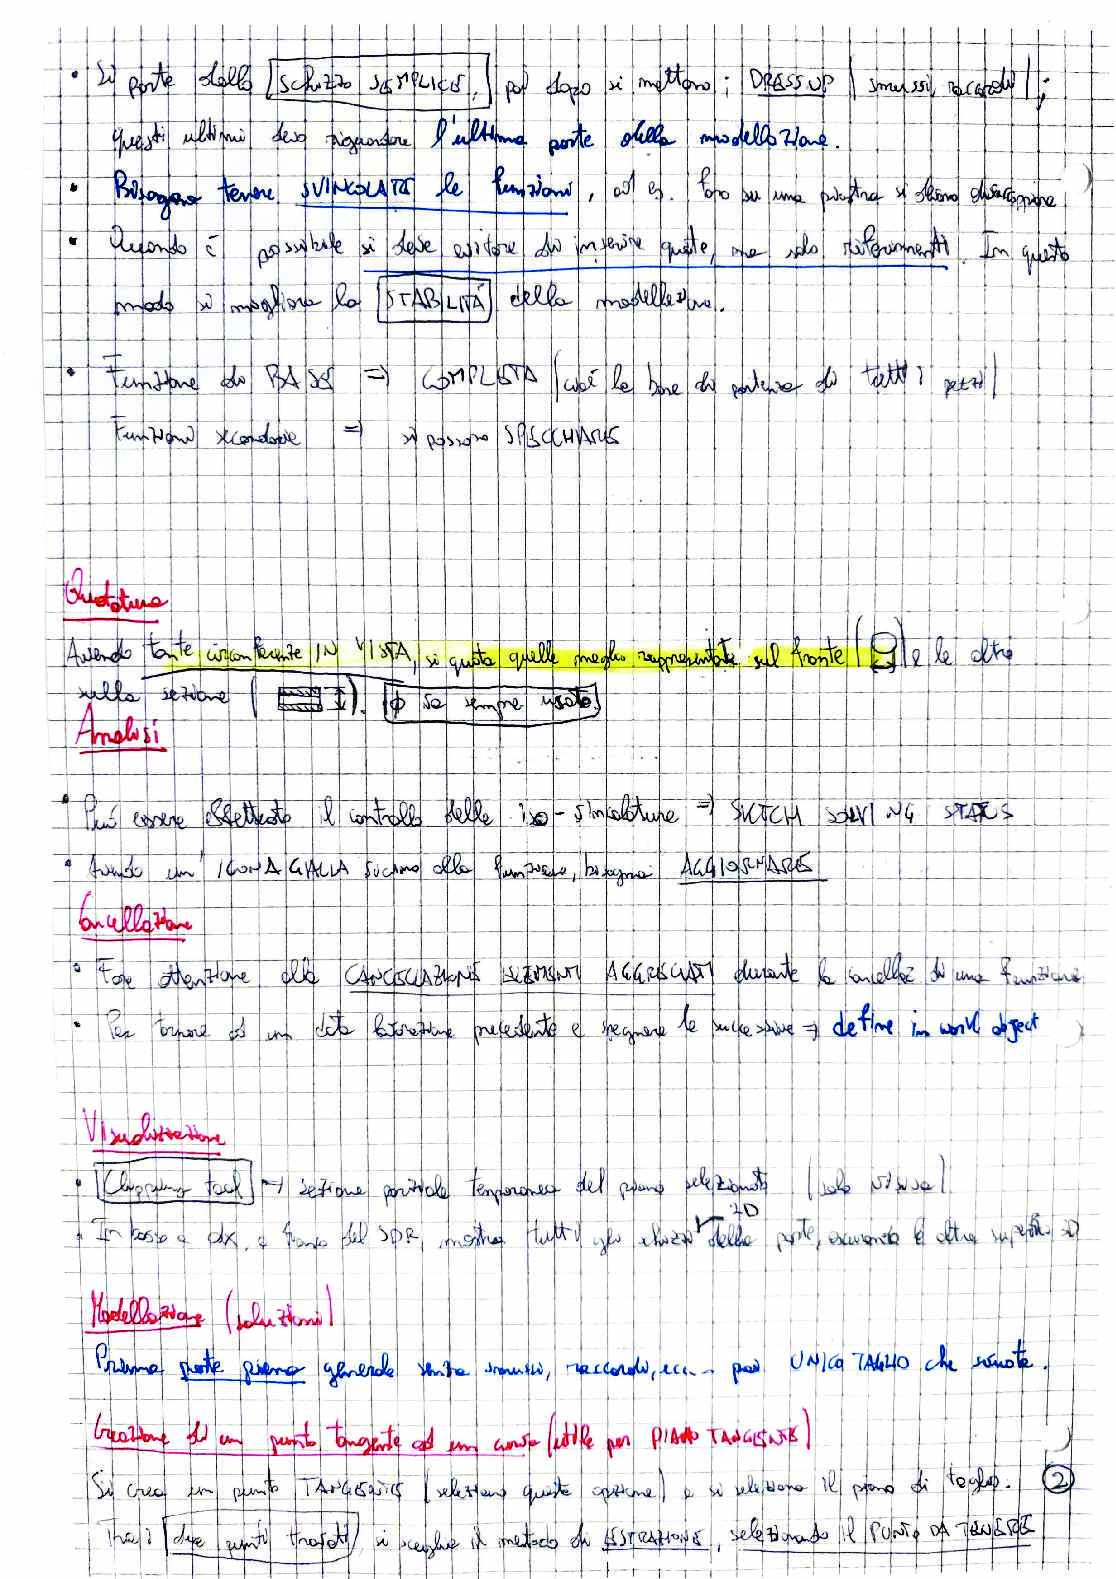 • Si parte dallo schizzo SEMPLICE, poi dopo si mettono i DRESS UP (smussi, raccordi);
questi ultimi devo riguardare l'ultima parte della modellazione.
• Bisogna tenere SVINCOLATE le funzioni, ad es. foro su una piastra si devono
• Quando è possibile si deve evitare di inserire quote, ma solo riferimenti. In questo
modo si migliora la STABILITÁ della modellazione.
• Funzione di BASE => COMPLETA (cioè la base di partenza di tutti i pezzi)
Funzioni secondarie => si possono SPECCHIARE
Quotatura
Avendo tante circonferenze IN VISTA, si quota quelle meglio rappresentate sul fronte ( ) e le altre
sulla sezione ( ). ϕ va sempre usato.
Analisi
• Può essere effettuato il controllo delle iso-vincolature => SKETCH SOLVING STATUS
• Avendo un' ICONA GIALLA vicino alla funzione, bisogna AGGIORNARE
Cancellazione
• Fare attenzione alla CANCELLAZIONE ELEMENTI AGGREGATI durante la cancellaz di una funzione
• Per tornare ad un data lavorazione precedente e spegnere le successive => define in work object
Visualizzazione
• Clipping tool → sezione parziale temporanea del piano selezionato (solo visiva)
• In basso a dx, a fianco del SDR, mostra tutti gli schizzi 2D della parte, oscurando le altre superfici 3D
Modellazione (soluzioni)
Prima parte piena generale senza smussi, raccordi, ecc... poi UNICO TAGLIO che svuota.
Creazione di un punto tangente ad una curva (utile per PIANO TANGENTE)
Si crea un punto TANGENTE (seleziono questa opzione) e si seleziona il piano di taglio. 2
Tra i due punti trovati, si sceglie il metodo di ESTRAZIONE, selezionando il PUNTO DA TENERE